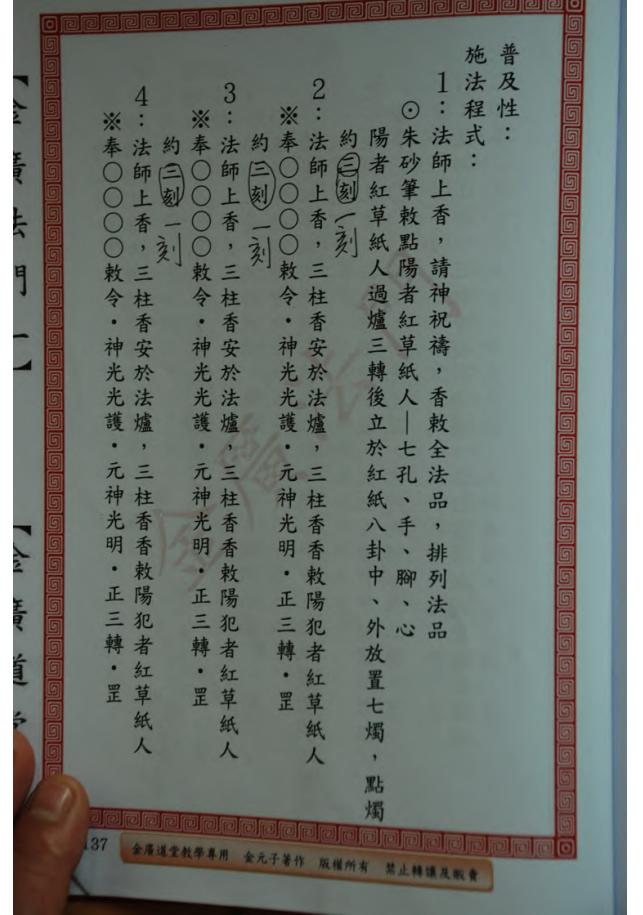 普及性：
施法程式：
1：法師上香，請神祝禱，香敕全法品，排列法品
⊙朱砂筆敕點陽者紅草紙人—七孔、手、腳、心
陽者紅草紙人過爐三轉後立於紅紙八卦中、外放置七燭，點燭
約三刻一刻
2：法師上香，三柱香安於法爐，三柱香香敕陽犯者紅草紙人
※奉○○○○敕令•神光光護•元神光明•正三轉•罡
約三刻一刻
3：法師上香，三柱香安於法爐，三柱香香敕陽犯者紅草紙人
※奉○○○○敕令•神光光護•元神光明•正三轉•罡
約三刻一刻
4：法師上香，三柱香安於法爐，三柱香香敕陽犯者紅草紙人
※奉○○○○敕令•神光光護•元神光明•正三轉•罡
【金廣法門】
【金廣道堂
金廣法門
137
金廣道堂教學專用 金元子著作 版權所有 禁止轉讓及販賣